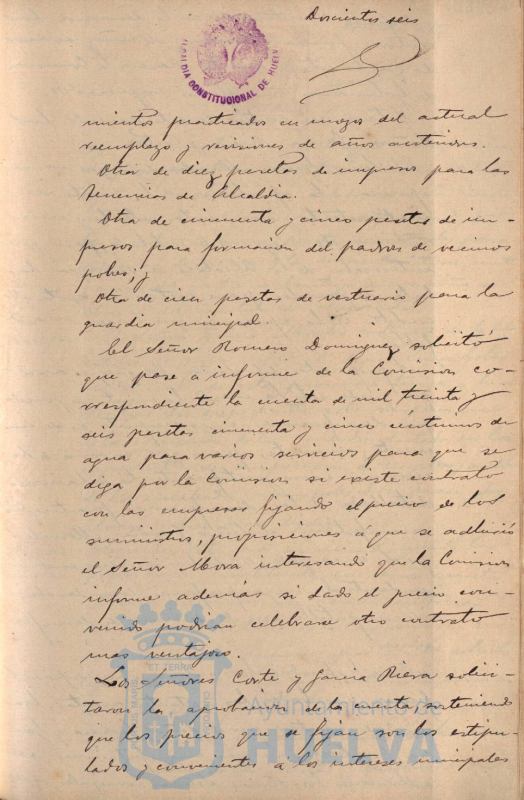 Doscientos seis
ALCALDIA CONSTITUCIONAL DE HUELVA
mientos practicados en mozos del actual
reemplazo y revisiones de años anteriores.
Otra de diez pesetas de impresos para las
tenencias de Alcaldia.
Otra de cincuenta y cinco pesetas de im-
presos para formacion del padron de vecinos
pobres; y
Otra de cien pesetas de vestuario para la
guardia municipal.
El Señor Romero Dominguez solicitó
que pase á informe de la Comision co-
rrespondiente la cuenta de mil treinta y
seis pesetas cincuenta y cinco céntimos de
agua para varios servicios para que se
diga por la Comision si existe contrato
con las empresas fijando el precio de los
suministros, proposiciones á que se adhirió
el Señor Mora interesando que la Comision
informe además si dado el precio con-
venido podrian celebrarse otro contrato
mas ventajoso.
Los Señores Corte y Garcia Riera solici-
taron la aprobacion de la cuenta, sosteniendo
que los precios que se fijan son los estipu-
lados y convenientes a los intereses municipales
Ayuntamiento de
HUELVA